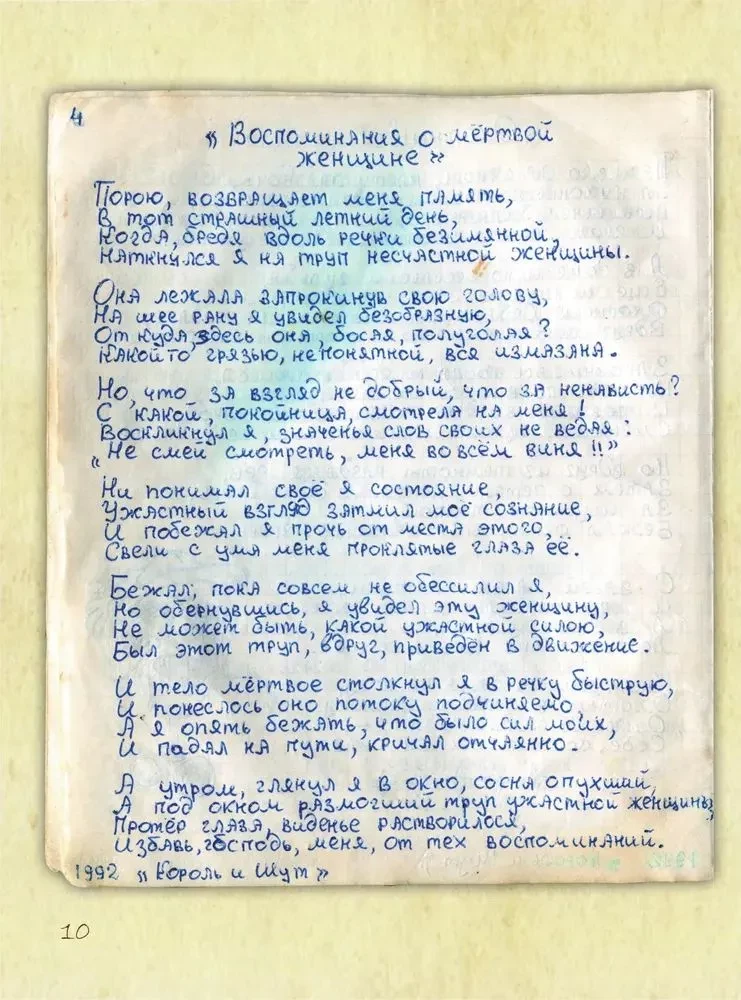 4
„ Воспоминания о мёртвой
женщине "
Порою, возвращает меня память,
В тот страшный летний день,
Когда, бредя вдоль речки безимянной,
Наткнулся я на труп несчастной женщины.
Она лежала запрокинув свою голову,
На шее рану я увидел безобразную,
От куда, здесь она, босая, полуголая?
Какой то грязью, непонятной, вся измазана.
Но, что за взгляд не добрый, что за ненависть?
С какой, покойница, смотрела на меня!
Воскликнул я, значенья слов своих не ведая:
„Не смей смотреть, меня во всём виня!!"
Ни понимал своё я состояние,
Ужастный взгляд затмил моё сознание,
И побежал я прочь от места этого,
Свели с ума меня проклятые глаза её.
Бежал, пока совсем не обессилил я,
Но обернувшись, я увидел эту женщину,
Не может быть, какой ужастной силою,
Был этот труп, вдруг, приведён в движение.
И тело мёртвое столкнул я в речку быструю,
И понеслось оно потоку подчиняемо,
А я опять бежать, что было сил моих,
И падал на пути, кричал отчаянно.
А утром, глянул я в окно, сосна опухший,
А под окном размогший труп ужастной женщины,
Протёр глаза, виденье растворилося,
Избавь, господь, меня, от тех воспоминаний.
1992 „ Король и Шут "
10